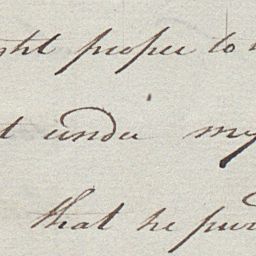 ght proper to
t under my
that he pur